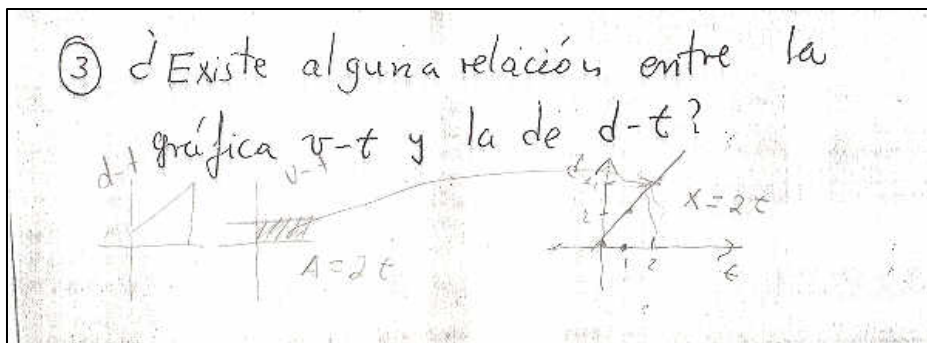 ③ ¿Existe alguna relación entre la
gráfica v-t y la de d-t?
d-t
v-t
A = 2t
d
4
2
X = 2t
1 2
t